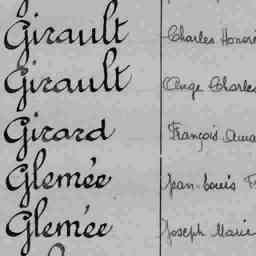 Girault Charles Honoré
Girault Ange Charles
Girard François
Glemée Jean-Louis
Glemée Joseph Marie